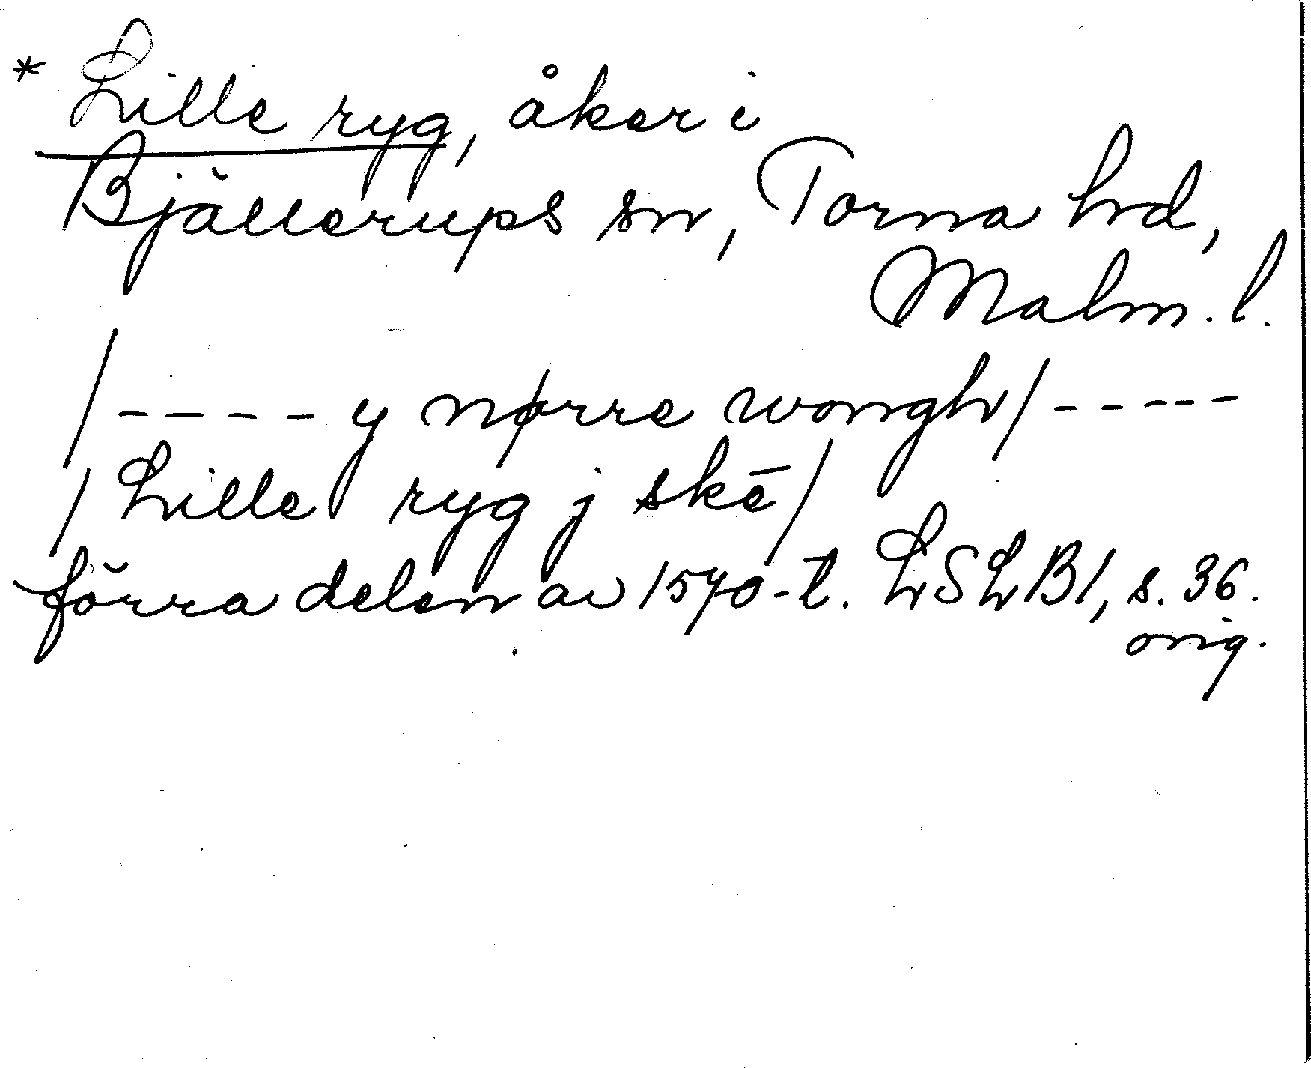 * Lille ryg, åker i
Bjällerups sn, Torna hrd,
Malm. l.
/----- y nørre wongh/-----
/Lille ryg j skē/
förra delen av 1570-t. LSLB1, s. 36.
orig.